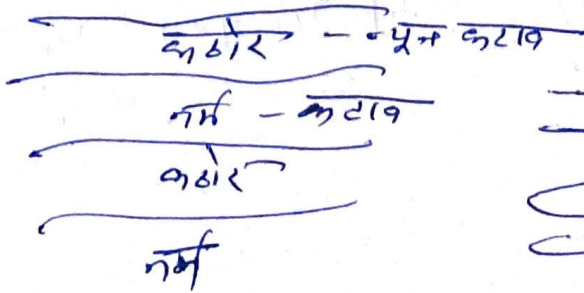 कठोर - न्यून कटाव
नर्म - कटाव
कठोर
नर्म